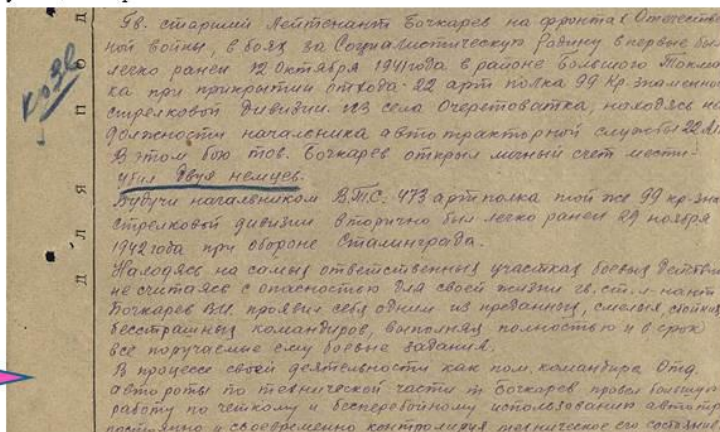 Гв. старший Лейтенант Бочкарев на фронтах Отечествен
ной войны, в боях за Социалистическую Родину впервые был
легко ранен 12 октября 1941 года в районе Большого Токма
ка при прикрытии отхода 22 арт полка 99 Кр. знаменной
стрелковой дивизии из села Очеретоватка, находясь на
должности начальника автотракторной службы 22 А
В этом бою тов. Бочкарев открыл личный счет мести-
убил двух немцев.
Будучи начальником В.Т.С. 473 арт полка той же 99 кр-зна
стрелковой дивизии вторично был легко ранен 29 ноября
1942 года при обороне Сталинграда.
Находясь на самых ответственных участках боевых действий
не считаясь с опасностью для своей жизни гв. ст. л-нант
Бочкарев В.И. проявил себя одним из преданных, смелых, стойких
бесстрашных командиров, выполняя полностью и в срок
все поручаемые ему боевые задания.
В процессе своей деятельности как пом. командира Отд.
автороты по технической части т Бочкарев провел большую
работу по четкому и бесперебойному использованию автотр
постоянно и своевременно контролируя техническое его состояние
Д Л Я П О Д